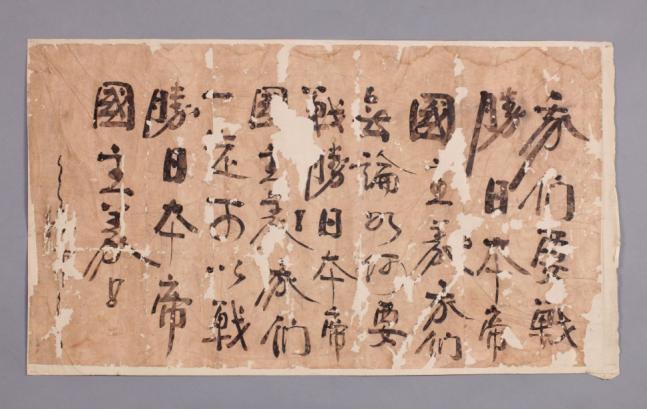 我们要戰
勝日本帝
國主義我们
無論如何要
戰勝日本帝
國主義我们
一定可以戰
勝日本帝
國主義